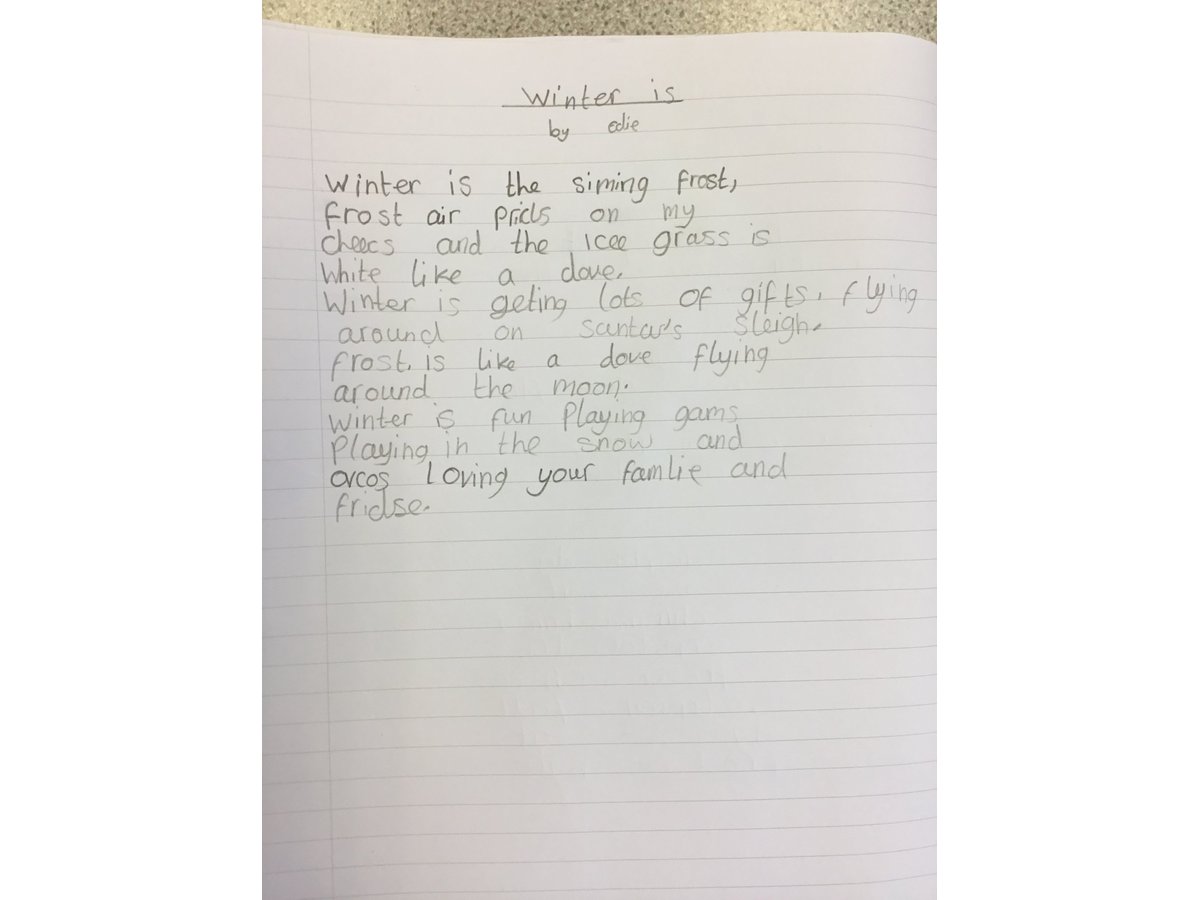 Winter is
by edie
Winter is the siming frost,
frost air pricls on my
cheecs and the icee grass is
White like a dove.
Winter is geting lots of gifts, flying
around on santa's sleigh.
frost. is like a dove flying
around the moon.
Winter is fun Playing gams
Playing in the snow and
orcos Loving your famlie and
fridse.